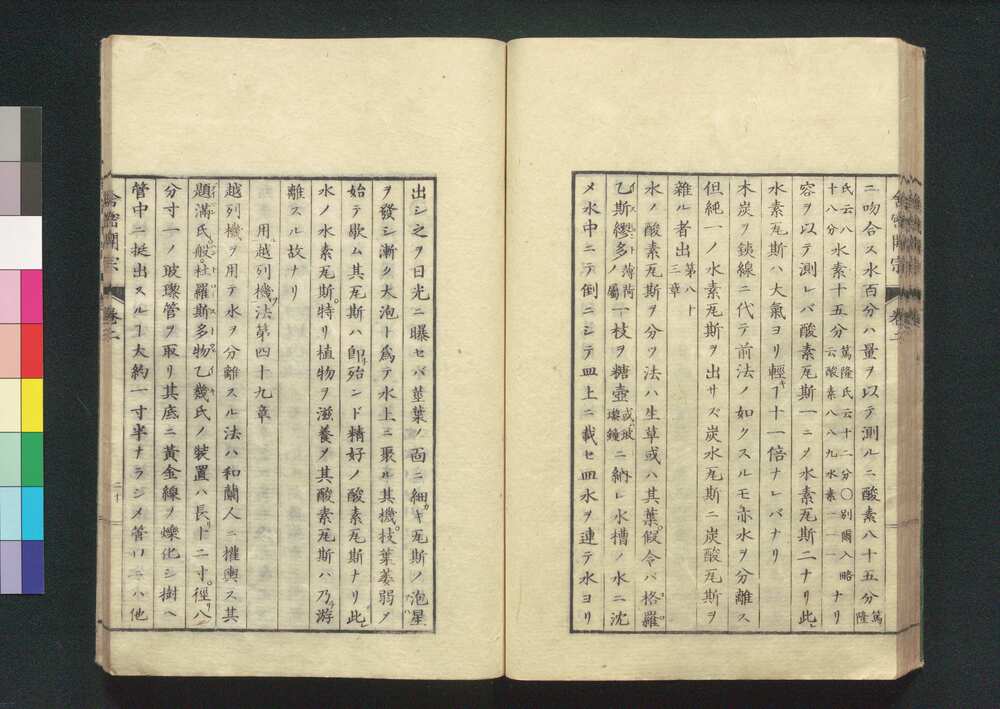 ニ吻合ス水百分ハ量ヲ以テ測ルニ酸素八十五分篤隆
氏云八十八分水素十五分篤隆氏云十二分〇別爾入略云酸素八八九水素一一一ナリ
容ヲ以テ測レバ酸素瓦斯一ニ乄水素瓦斯二ナリ此
水素瓦斯ハ大氣ヨリ輕キヿ十一倍ナレバナリ
木炭ヲ鐵線ニ代テ前法ノ如クスルモ亦水ヲ分離ス
但純一ノ水素瓦斯ヲ出サズ炭水瓦斯ニ炭酸瓦斯ヲ
雜ル者出第八十三章
水ノ酸素瓦斯ヲ分ツ法ハ生草或ハ其葉假令バ格羅
乙斯繆多薄荷ノ屬一枝ヲ糖壺或玻瓈鐘ニ納レ水槽ノ水ニ沈
メ水中ニテ倒ニシテ皿上ニ載セ皿水ヲ連テ水ヨリ
舎密開宗 卷二
出シ之ヲ日光ニ曝セバ莖葉ノ面ニ細キ瓦斯ノ泡星
ヲ發シ漸ク大泡ト爲テ水上ニ聚ル其機枝葉萎弱乄
始テ歇ム其瓦斯ハ即殆ンド精好ノ酸素瓦斯ナリ此
水ノ水素瓦斯特リ植物ヲ滋養乄其酸素瓦斯ハ乃游
離スル故ナリ
用越列機法第四十九章
越列機ヲ用テ水ヲ分離スル法ハ和蘭人ニ權輿ス其
題滿氏般杜羅斯多物乙幾氏ノ裝置ハ長十二寸徑八
分寸一ノ玻瓈管ヲ取リ其底ニ黃金線ヲ爍化シ樹ヘ
管中ニ挺出スルヿ大約一寸半ナラシメ管口ニハ他
舎密開宗 卷二 二十